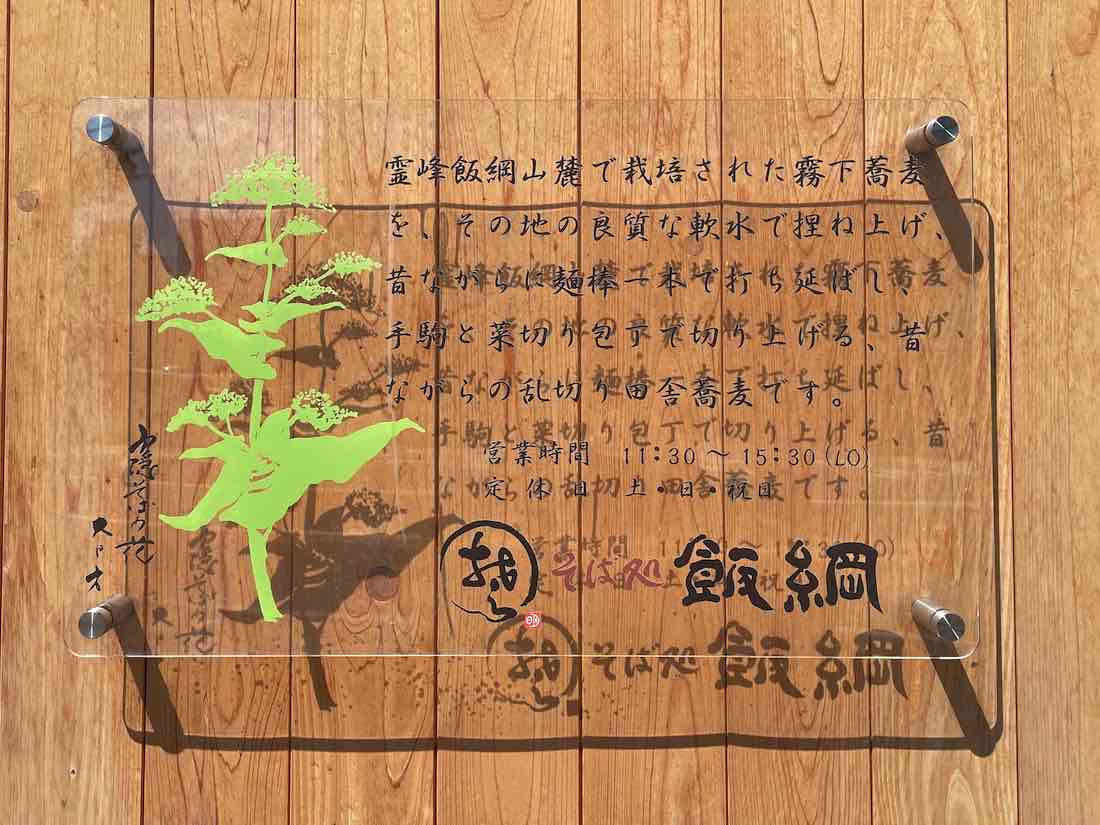 霊峰飯綱山麓で栽培された霧下蕎麦
を、その地の良質な軟水で捏ね上げ、
昔ながらに麺棒一本で打ち延ばし、
手駒と菜切り包丁で切り上げる、昔
ながらの乱切り田舎蕎麦です。
営業時間 11:30～15:30(LO)
定休日 土・日・祝日
そば処 飯綱